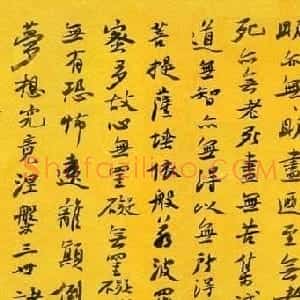 明亦無明盡迺至無老
死亦無老死盡無苦集滅
道無智亦無得以無所得
菩提薩埵依般若波羅
蜜多故心無罣礙無罣礙
無有恐怖遠離顛倒
夢想究竟涅槃三世諸
Shufaziliao.com